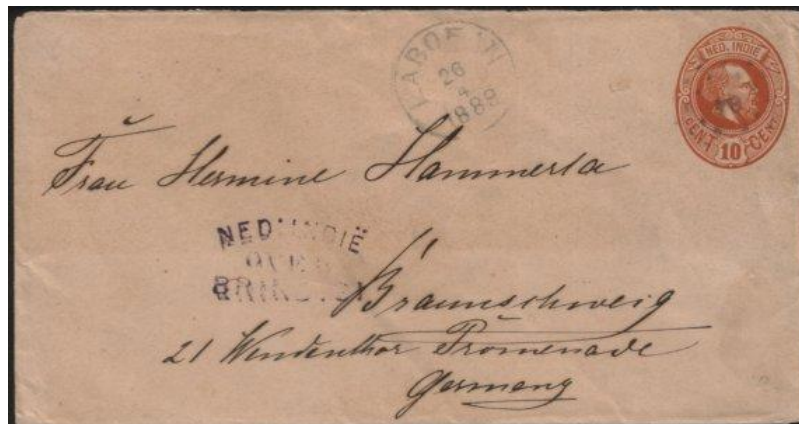 LABOEAN
26
4
1888
NED. INDIË
CENT 10 CENT
Frau Hermine Hammerla
NED. INDIË
OVER
BRINDISI
Braunschweig
21 Wendenthor Promenade
Germany